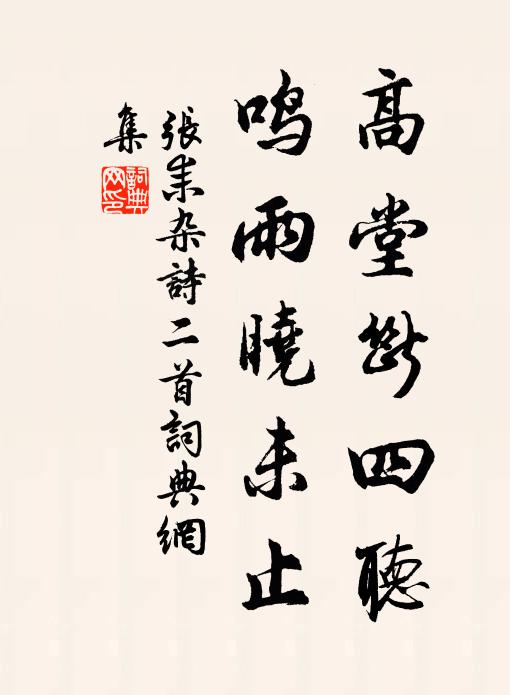 高堂斷四聽
鸣雨曉未止
張耒杂詩二首詞典網
集
詞典網印